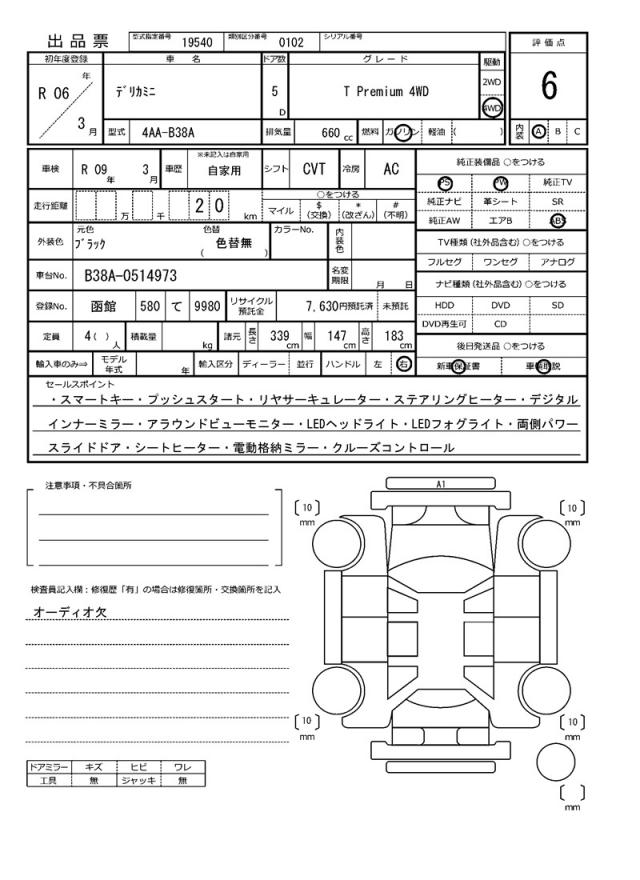 出 品 票 型式指定番号 19540 類別区分番号 0102 シリアル番号
初年度登録 車 名 ドア数 グレード 駆動 評 価 点
R 06 年 3 月 デリカミニ 5 D T Premium 4WD 2WD 4WD 6
型式 4AA-B38A 排気量 660 cc 燃料 ガソリン 軽油 ( ) 内装 A B C
車検 R 09 年 3 月 車歴 ※未記入は自家用 自家用 シフト CVT 冷房 AC 純正装備品 ○をつける
PS PW 純正TV
走行距離 万 千 2 0 km ○をつける マイル $ (交換) * (改ざん) # (不明) 純正ナビ 革シート SR
純正AW エアB ABS
外装色 元色 ブラック 色替 色替無 ( ) カラーNo. 内装色 TV種類 (社外品含む) ○をつける
フルセグ ワンセグ アナログ
車台No. B38A-0514973 名変期限 月 日 ナビ種類 (社外品含む) ○をつける
登録No. 函館 580 て 9980 リサイクル預託金 7,630円預託済 未預託 HDD DVD SD
DVD再生可 CD
定員 4( ) 人 積載量 kg 諸元 長さ 339 cm 幅 147 cm 高さ 183 cm 後日発送品 ○をつける
輸入車のみ⇒ モデル年式 年 輸入区分 ディーラー 並行 ハンドル 左 右 新車保証書 車輌取説
セールスポイント
・スマートキー・プッシュスタート・リヤサーキュレーター・ステアリングヒーター・デジタル
インナーミラー・アラウンドビューモニター・LEDヘッドライト・LEDフォグライト・両側パワー
スライドドア・シートヒーター・電動格納ミラー・クルーズコントロール
注意事項・不具合箇所
A1
〔 10 〕 mm 〔 10 〕 mm
検査員記入欄：修復歴「有」の場合は修復箇所・交換箇所を記入
オーディオ欠
〔 10 〕 mm 〔 10 〕 mm
ドアミラー キズ ヒビ ワレ
工具 無 ジャッキ 無
〔 〕 mm